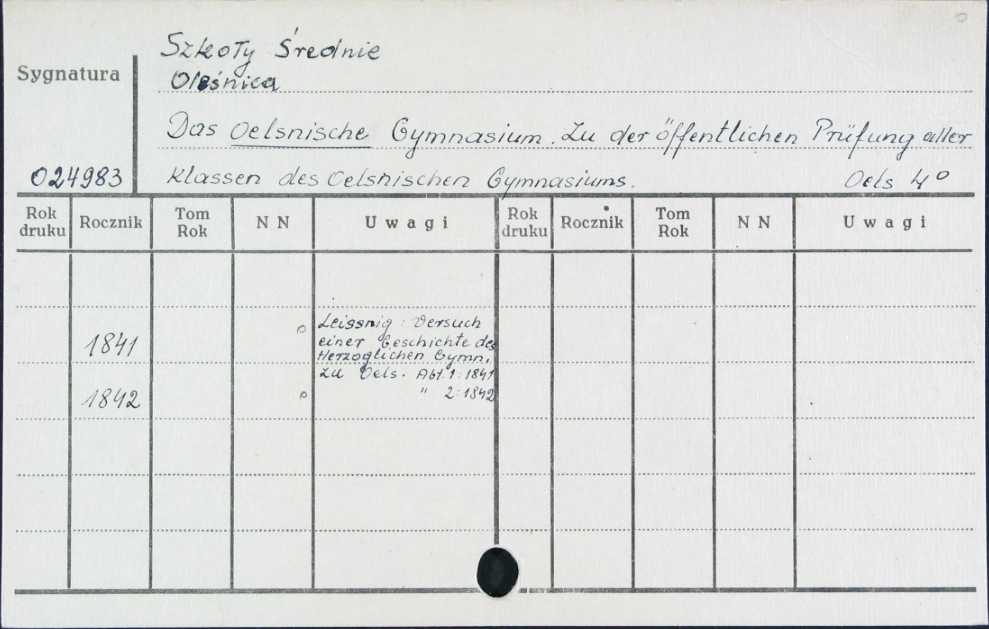 Szkoły Średnie
Sygnatura
Oleśnica
Das Oelsnische Gymnasium. Zu der öffentlichen Prüfung aller
024983
Klassen des Oelsnischen Gymnasiums.
Oels 4°
Rok druku Rocznik Tom Rok N N Uwagi Rok druku Rocznik Tom Rok N N Uwagi
Leissnig: Versuch
1841 einer Geschichte des
Herzoglichen Gymn.
zu Oels. Abt. 1: 1841
1842 " 2: 1842